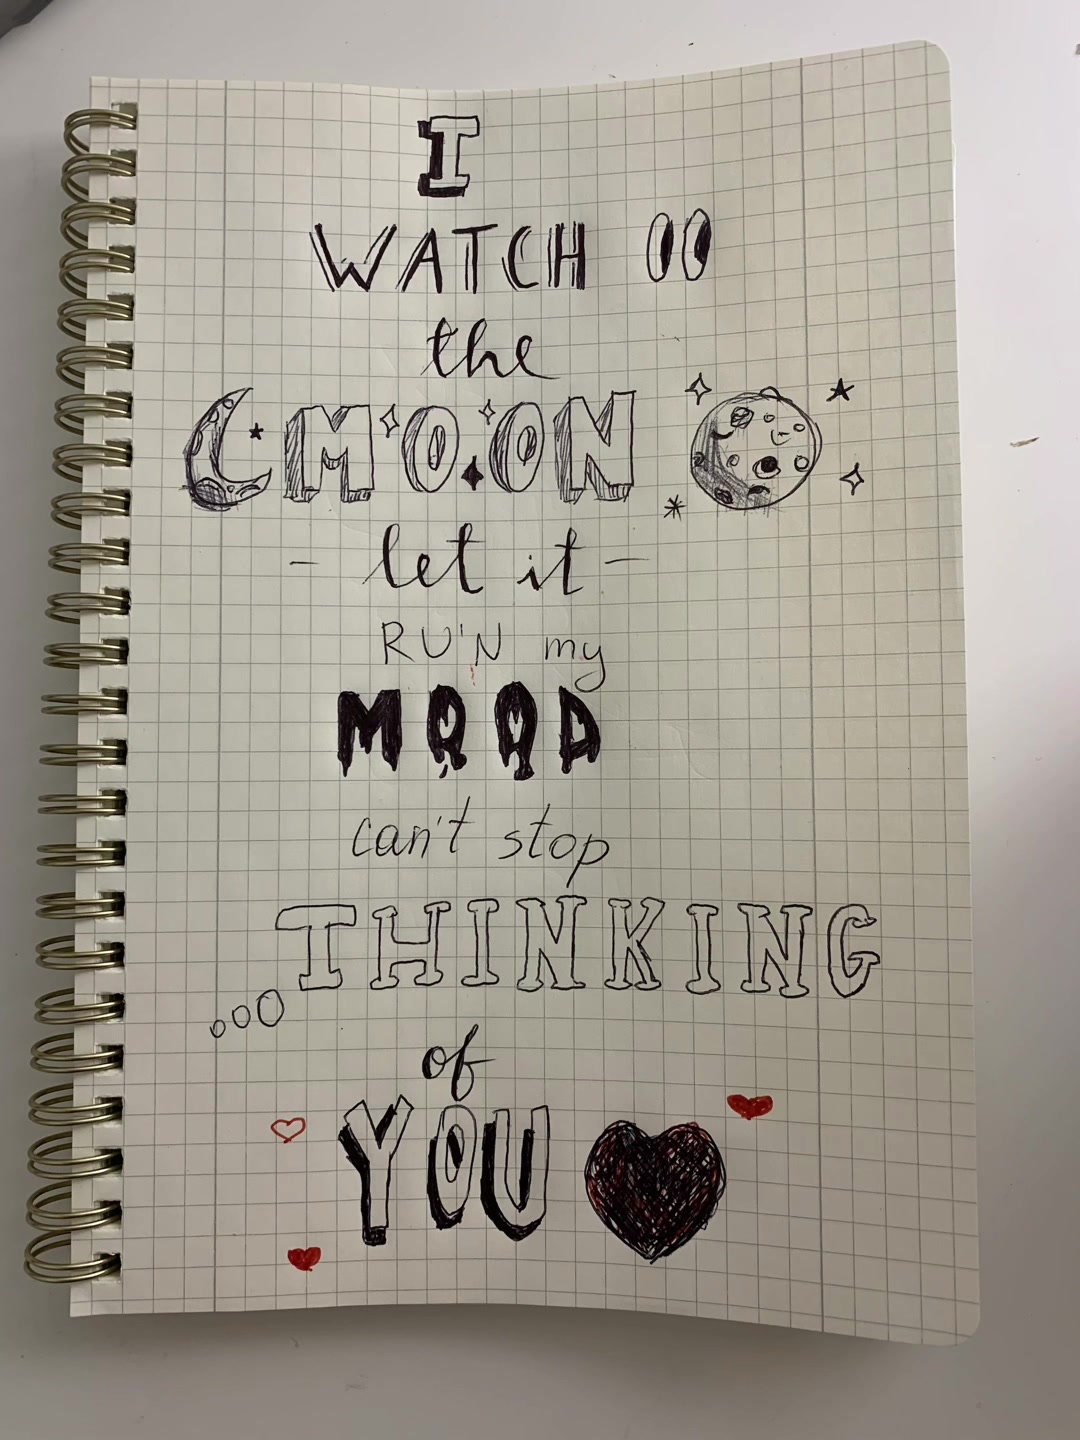 I
WATCH
the
MOON
- let it -
RU'N my
MOOD
can't stop
...THINKING
of
YOU